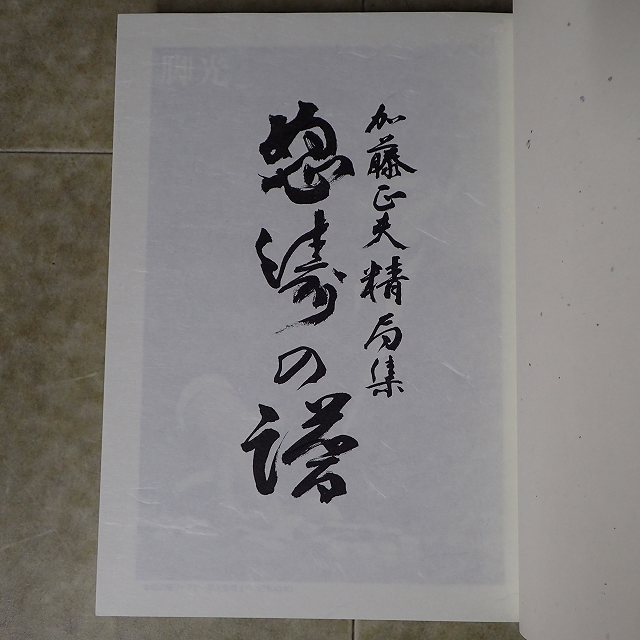 加藤正夫精局集
怒濤の譜